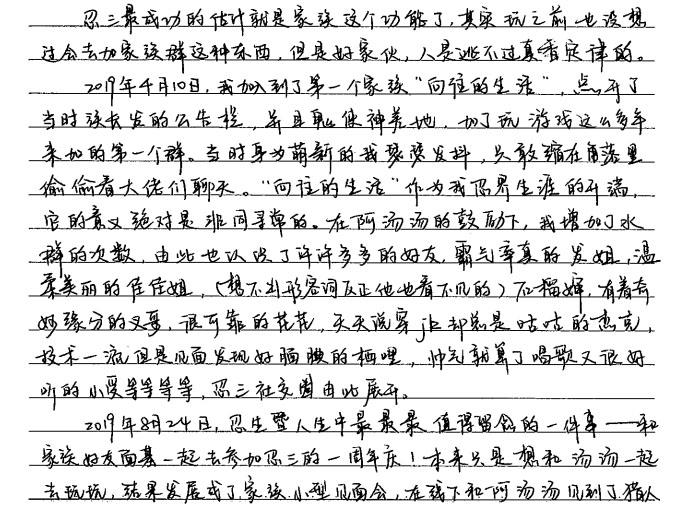 忍三最成功的估计就是家族这个功能了，其实玩之前也没想
过会去加家族群这种东西，但是好家伙，人是逃不过真香定律的。
2019年4月10日，我加入到了第一个家族“向往的生活”，点开了
当时族长发的公告栏，并且鬼使神差地，加了玩游戏这么多年
来加的第一个群。当时身为萌新的我瑟瑟发抖，只敢缩在角落里
偷偷看大佬们聊天。“向往的生活”作为我忍界生涯的开端，
它的意义绝对是非同寻常的。在阿汤汤的鼓励下，我增加了水
群的次数，由此也认识了许许多多的好友，霸气率真的发姐，温
柔美丽的佳佳姐，(想不出形容词反正他也看不见的)石榴婶，有着奇
妙缘分的叉哥，很可靠的花花，天天说穿jk却总是咕咕的杰克，
技术一流但是见面发现好腼腆的栖哩，帅气就算了唱歌又很好
听的小受等等等等，忍三社交圈由此展开。
2019年8月24日，忍生暨人生中最最最值得留念的一件事——和
家族好友面基一起去参加忍三的一周年庆！本来只是想和汤汤一起
去玩玩，结果发展成了家族小型见面会，在线下和阿汤汤见到了猎人